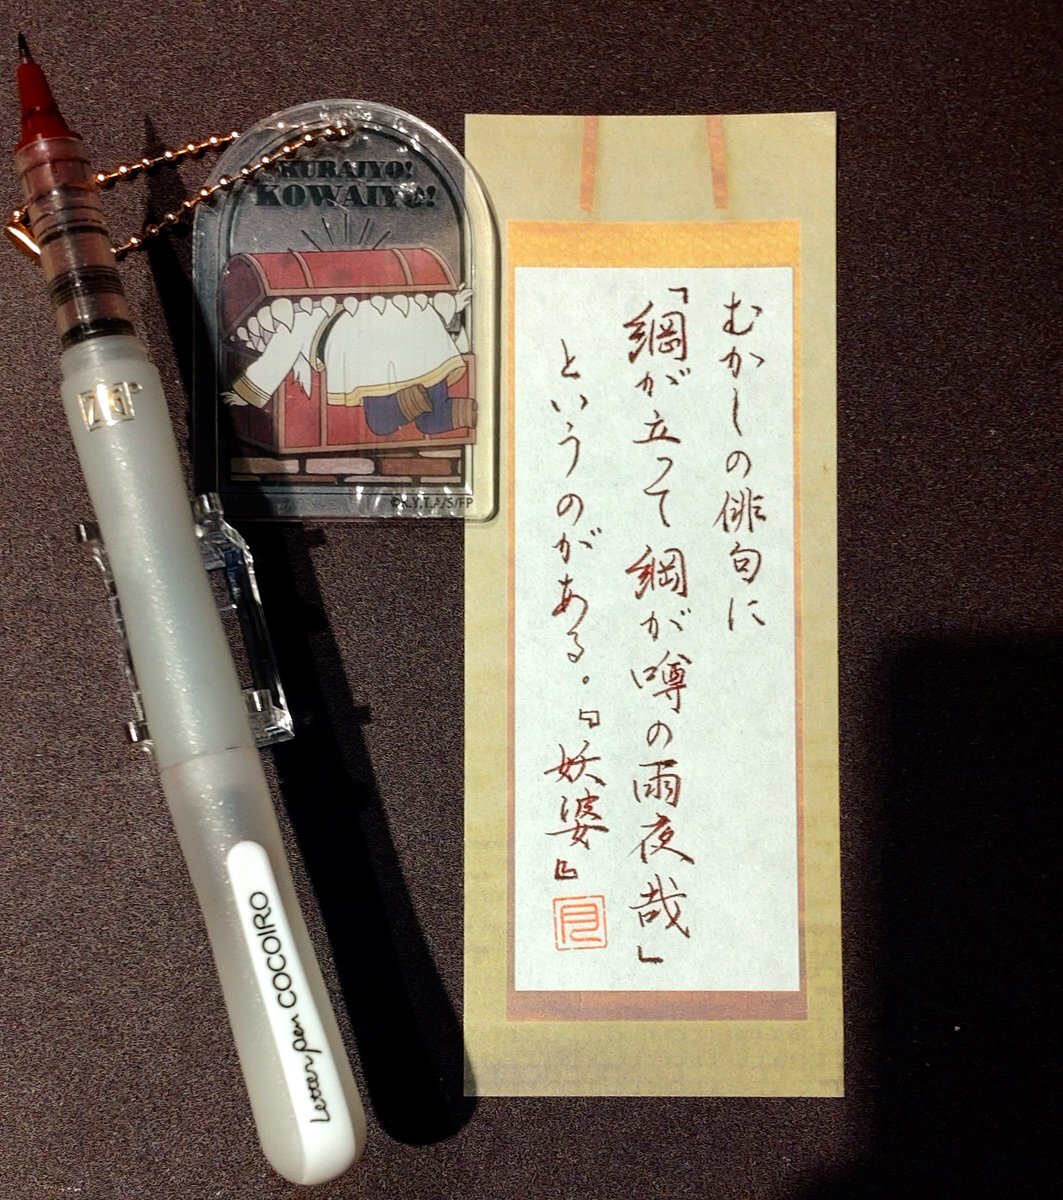 むかしの俳句に
「綱が立って綱が噂の雨夜哉」
というのがある。『妖婆』
KURAIYO!
KOWAIYO!
©K.Y,T.A/S/FP
ZIG
Letter pen COCOIRO